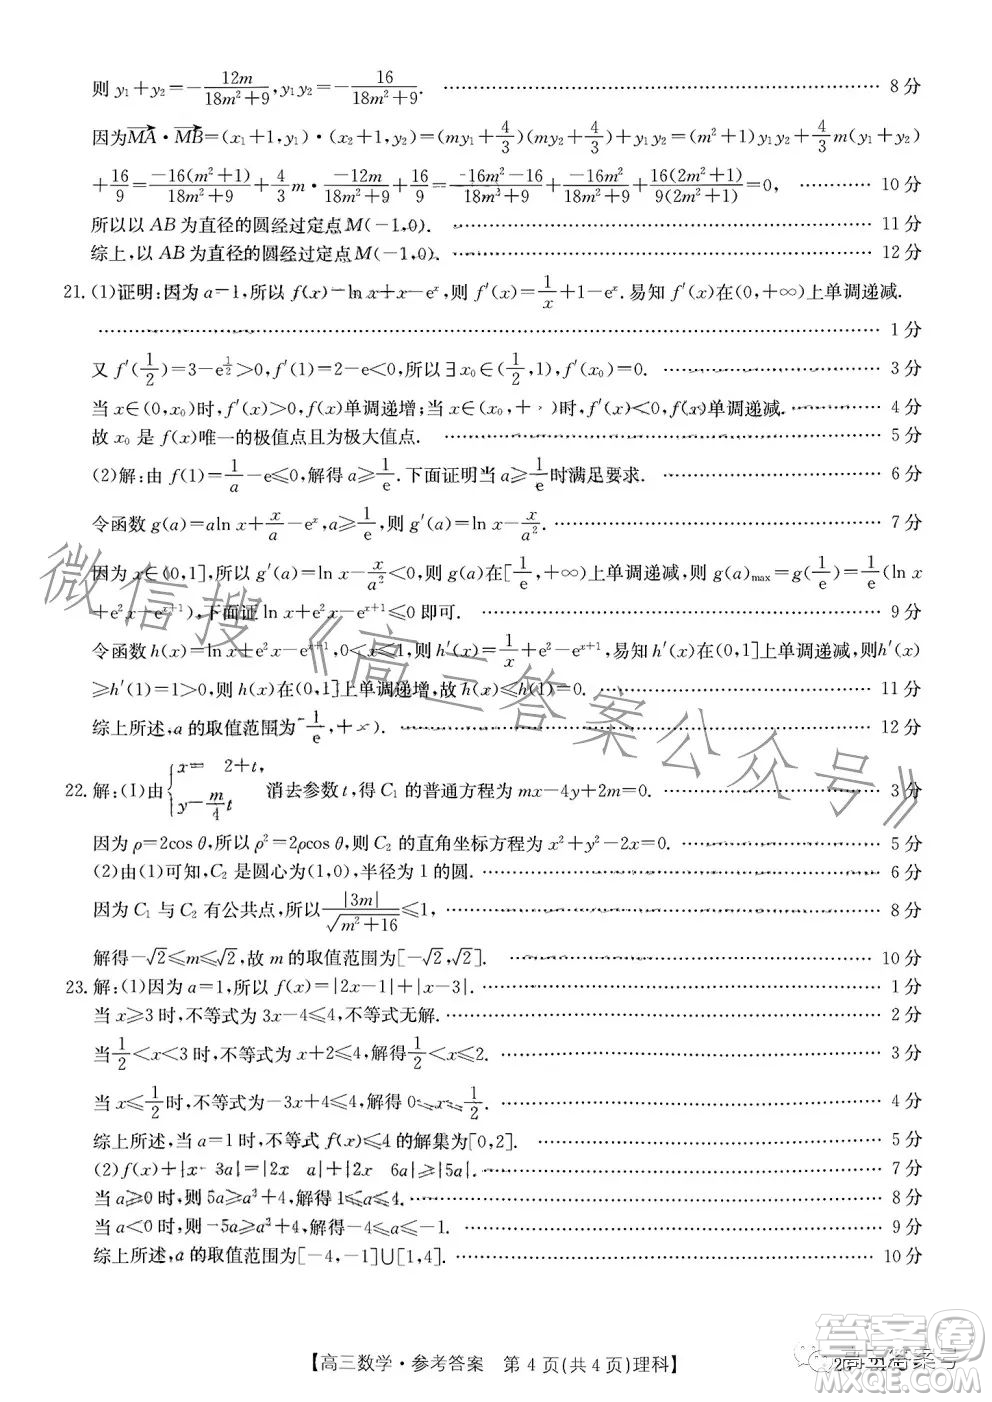 则 y₁+y₂=-12m/(18m²+9), y₁y₂=-16/(18m²+9). 8分
因为MA·MB=(x₁+1,y₁)·(x₂+1,y₂)=(my₁+4/3)(my₂+4/3)+y₁y₂=(m²+1)y₁y₂+4/3m(y₁+y₂)
+16/9=-16(m²+1)/(18m²+9)+4/3m·-12m/(18m²+9)+16/9=-16m²-16/(18m²+9)+-16m²/(18m²+9)+16(2m²+1)/9(2m²+1)=0, 10分
所以以AB为直径的圆经过定点M(-1,0). 11分
综上,以AB为直径的圆经过定点M(-1,0). 12分
21.(1)证明:因为a=1,所以f(x)=ln x+x-eˣ,则f′(x)=1/x+1-eˣ.易知f′(x)在(0,+∞)上单调递减.
1分
又f′(1/2)=3-e^(1/2)>0,f′(1)=2-e<0,所以∃x₀∈(1/2,1),f′(x₀)=0. 3分
当x∈(0,x₀)时,f′(x)>0,f(x)单调递增;当x∈(x₀,+ )时,f′(x)<0,f(x)单调递减. 4分
故x₀是f(x)唯一的极值点且为极大值点. 5分
(2)解:由f(1)=1/a-e≤0,解得a≥1/e.下面证明当a≥1/e时满足要求. 6分
令函数g(a)=aln x+x/a-eˣ,a≥1/e,则g′(a)=ln x-x/a². 7分
因为x∈(0,1],所以g′(a)=ln x-x/a²<0,则g(a)在[1/e,+∞)上单调递减,则g(a)max=g(1/e)=1/e(ln x
+e²x-e^(x+1)),下面证ln x+e²x-e^(x+1)≤0即可. 9分
令函数h(x)=ln x+e²x-e^(x+1),0<x≤1,则h′(x)=1/x+e²-e^(x+1),易知h′(x)在(0,1]上单调递减,则h′(x)
≥h′(1)>0,则h(x)在(0,1]上单调递增,故h(x)≤h(1)=0. 11分
综上所述,a的取值范围为[1/e,+ ). 12分
22.解:(1)由{x= 2+t, y=m/4 t 消去参数t,得C₁的普通方程为mx-4y+2m=0. 3分
因为ρ=2cos θ,所以ρ²=2ρcos θ,则C₂的直角坐标方程为x²+y²-2x=0. 5分
(2)由(1)可知,C₂是圆心为(1,0),半径为1的圆. 6分
因为C₁与C₂有公共点,所以|3m|/√(m²+16)≤1, 8分
解得-√2≤m≤√2,故m的取值范围为[-√2,√2]. 10分
23.解:(1)因为a=1,所以f(x)=|2x-1|+|x-3|. 1分
当x≥3时,不等式为3x-4≤4,不等式无解. 2分
当1/2<x<3时,不等式为x+2≤4,解得1/2<x≤2. 3分
当x≤1/2时,不等式为-3x+4≤4,解得0≤x≤1/2. 4分
综上所述,当a=1时,不等式f(x)≤4的解集为[0,2]. 5分
(2)f(x)+|x- 3a|=|2x a|+|2x 6a|≥|5a|. 7分
当a≥0时,则5a≥a²+4,解得1≤a≤4. 8分
当a<0时,则-5a≥a²+4,解得-4≤a≤-1. 9分
综上所述,a的取值范围为[-4,-1]∪[1,4]. 10分
【高三数学·参考答案 第4页(共4页)理科】
微信搜《高三答案公众号》
答案圈
MXQE.COM